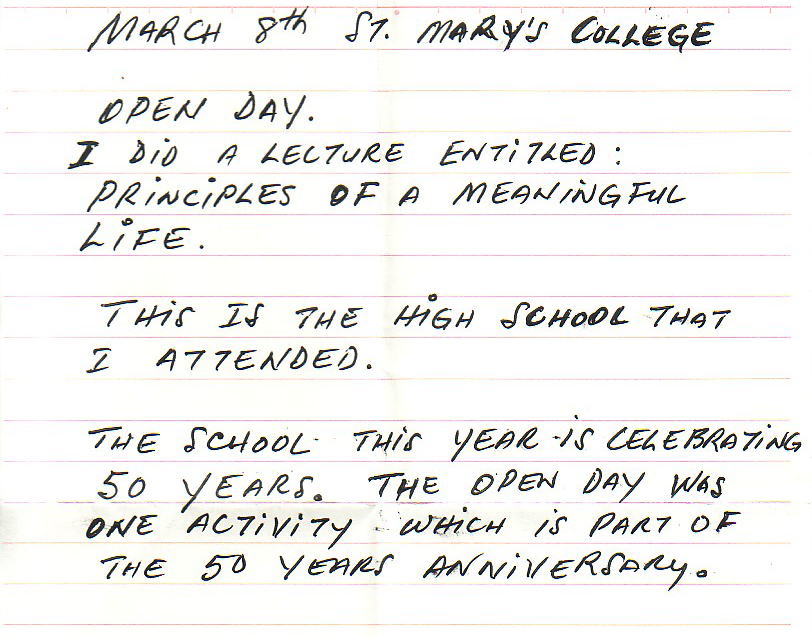 MARCH 8th ST. MARY'S COLLEGE
OPEN DAY.
I DiD A LECTURE ENTiTLED:
PRiNCiPLES OF A MEANiNGFUL
LiFE.
THiS IS THE HiGH SCHOOL THAT
I ATTENDED.
THE SCHOOL THiS YEAR iS CELEBRATiNG
50 YEARS. THE OPEN DAY WAS
ONE ACTiViTY WHiCH iS PART OF
THE 50 YEARS ANNiVERSARY.